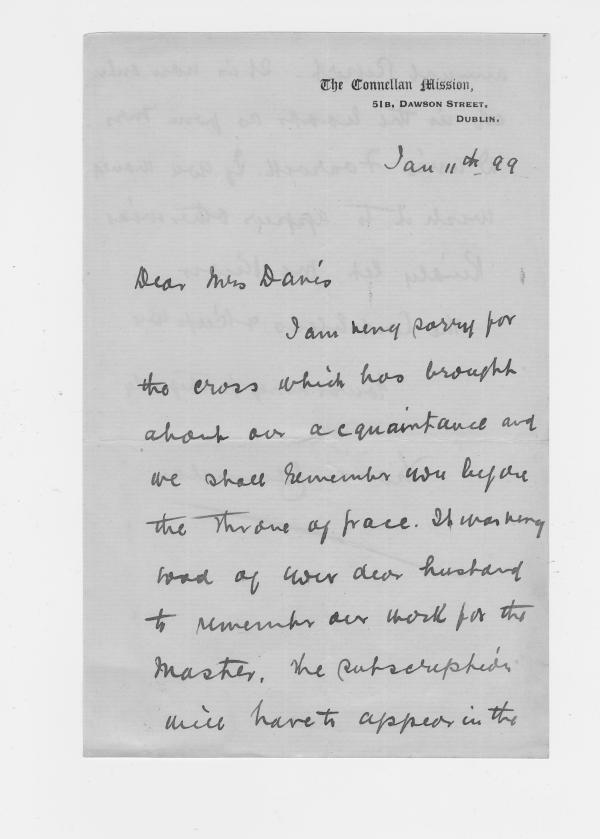 The Connellan Mission,
51B, Dawson Street,
Dublin.
Jan 11th 99
Dear Mrs Davis
I am very sorry for
the cross which has brought
about our acquaintance and
we shall remember you before
the Throne of grace. It was very
good of your dear husband
to remember our work for the
Master. The subscription
will have to appear in the